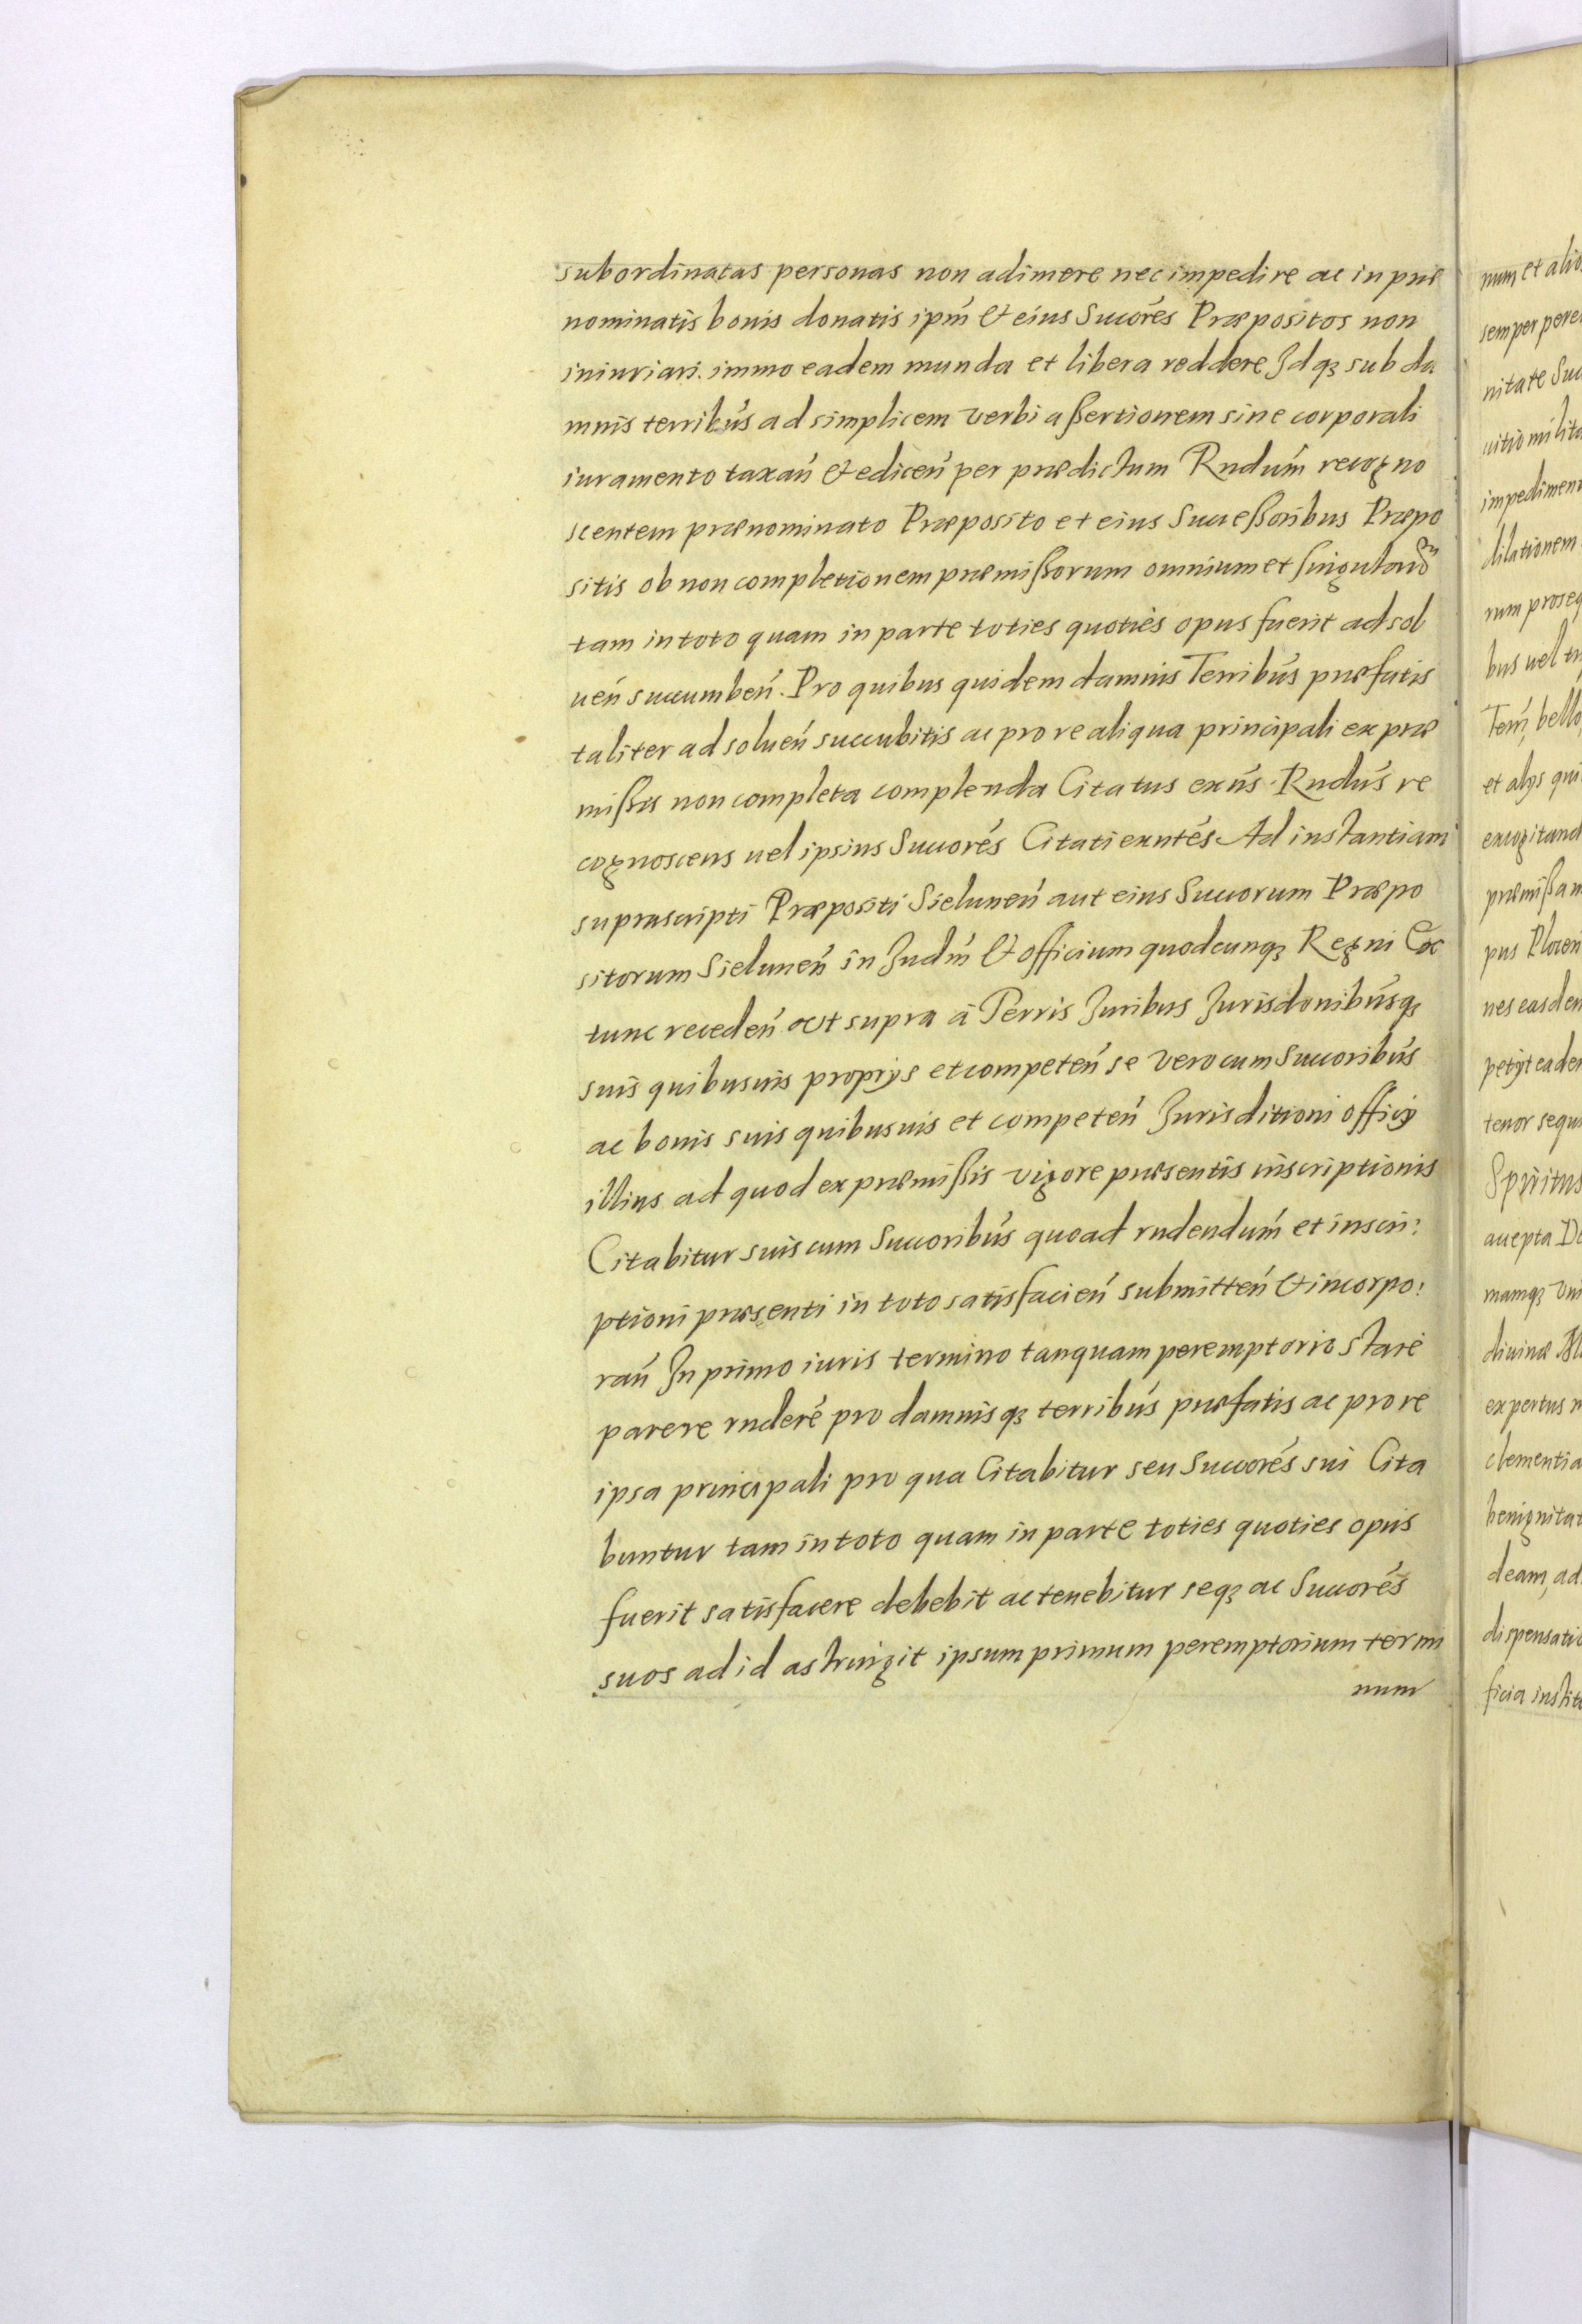 subordinatas personas non adimere nec impedire ac in præ
nominatis bonis donatis ipm̃ et eius Succores̃ Præpositos non
iniuriari. immo eadem munda et libera reddere Idqȝ sub da
mnis terribus̃ ad simplicem verbi aßertionem sine corporali
iuramento taxan̄ et edicen̄ per prædictum Rndum̃ recogno
scentem prænominato Præposito et eius Succeßoribus Præpo
sitis ob non completionem præmißorum omnium et singularum
tam in toto quam in parte toties quoties opus fuerit ad sol
uen̄ succumben̄. Pro quibus quidem damnis Terribus̃ præfatis
taliter ad soluen̄ succubitis ac pro re aliqua principali ex præ
mißis non completa complenda Citatus exns̃ Rndus̃ re
cognoscens uel ipsius Succores̃ Citati exntes̃ Ad instantiam
suprascripti Præpositi Sielunen̄ aut eius Succorum Præpo
sitorum Sielunen̄ in Judm̃ et officium quodcunqȝ Regni Etc
tunc receden̄ ut supra à Terris Juribus Jurisdonibus̃qȝ
suis quibusuis proprijs et competen̄ se vero cum Succoribus̃
ac bonis suis quibusuis et competen̄ Jurisditioni officij
illius ad quod ex præmißis vigore præsentis inscriptionis
Citabitur suis cum Succoribus̃ quoad rndendum̃ et inscri:
ptioni præsenti in toto satisfacien̄ submitten̄ et incorpo:
ran̄ In primo iuris termino tanquam peremptorio stare
parere rnderē pro damnisqȝ terribus̃ præfatis ac pro re
ipsa principali pro qua Citabitur seu Succores̃ sui Cita
buntur tam in toto quam in parte toties quoties opus
fuerit satisfacere debebit ac tenebitur seqȝ ac Succores̃
suos ad id astringit ipsum primum peremptorium termi
num
num et alio
semper pere
nitate Suc
uitio milita
impedimen
dilationem
rum proseq
bus uel
bello
et alijs qui
excogitand
præmißam
pus Plocen
nes easdem
petijt eadem
tenor sequi
Spiritus
accepta
mamqȝ Vni
diuinæ
expertus
clementia
benignitat
deam, ad
dispensatio
ficia institu